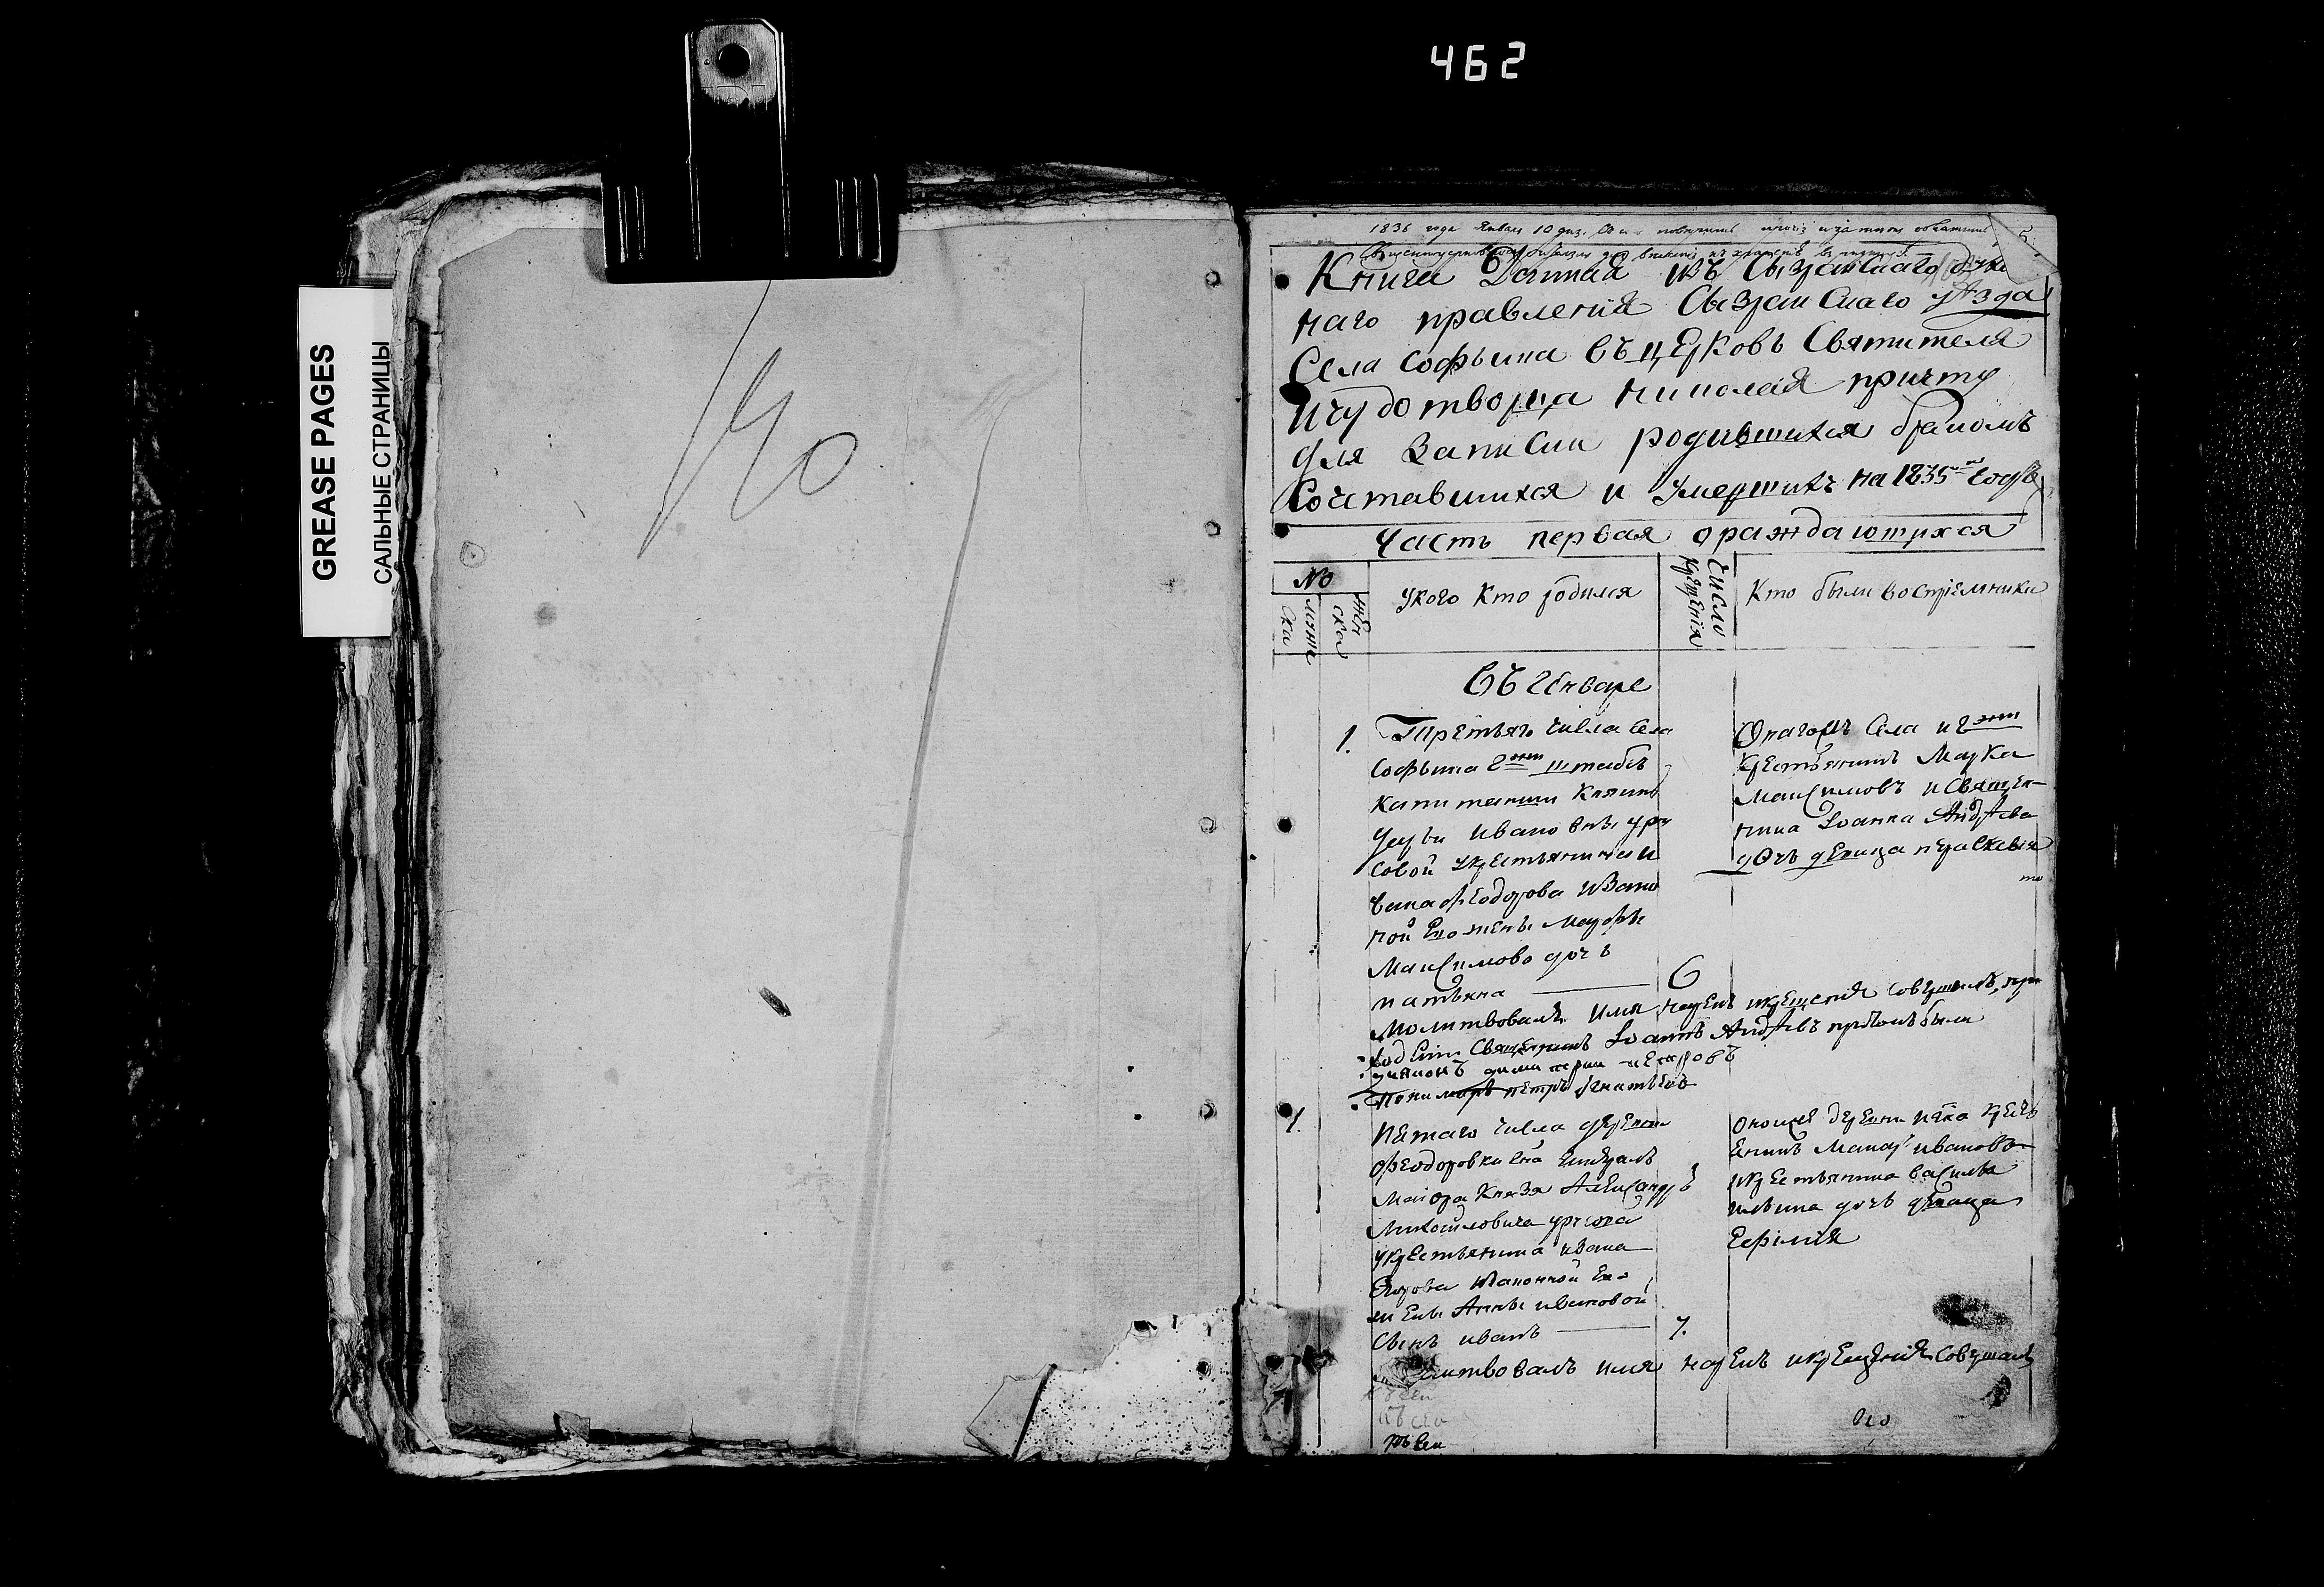 462
GREASE PAGES
САЛЬНЫЕ СТРАНИЦЫ
40
5
1836 года Января 10 дня
Книга Данная изъ Сызранскаго духов
наго правления Сызранскаго уѣзда
Села Софьина въ церковь Святителя
и чудотворца Николая причту
для записки родившихся бракомъ
сочетавшихся и умершихъ на 1835 годъ
Часть первая о раждающихся
№
муже
ска
жен
ска
у кого кто родился
число
крещенія
Кто были воспріемники
въ генваре
1.
Третьяго числа села
Софьина г штабсъ
капитанши Княгини
Ивановны уру
совой у крестьянина и
вана Феодорова и закон
ной Его жены Мавры
Максимово дочь
татьяна
6
Онагожъ Села и г
крестьянинъ Марка
Максимовъ и Священ
ника Іоанна Андрѣева
дочь девица праскевия
Молитвовалъ имя нареклъ и крещения совершилъ при
ходский Священникъ Іоаннъ Андрѣевъ притомъ были
диаконъ димитрии петровъ
Пономарь петръ Игнатьевъ
1.
Пятаго числа деревни
Феодоровки Гна Генералъ
маіора Князя Александръ
Михайловича урусова
у крестьянина ивана
Егорова и законной Его
жены Анны ивановой
Сынъ иванъ
7.
Оноцже деревни и г на крестья
енинъ Макар ивановъ
и крестьянина василья
ильина дочь девица
Ефимія
Молитвовалъ имя нареклъ и крещения Совершалъ